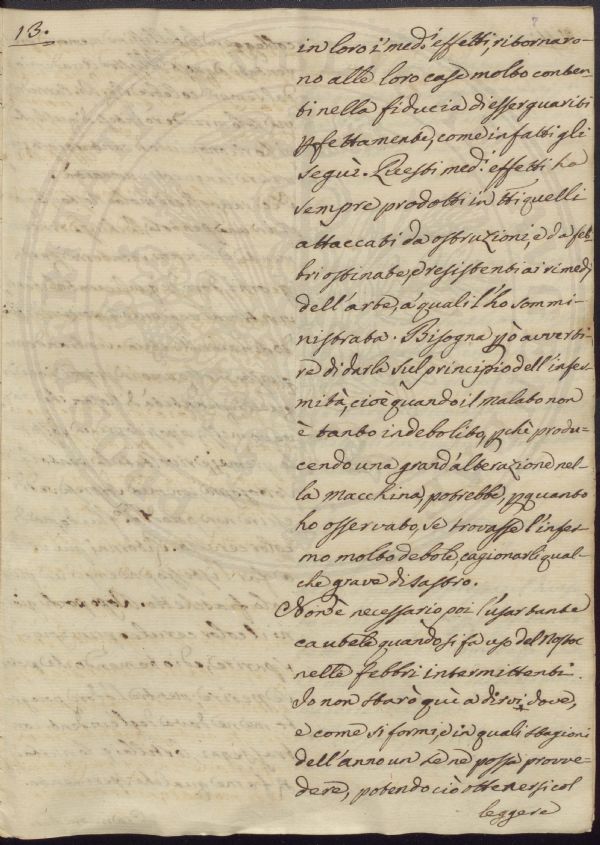 13.
in loro i med.i effetti, ritornaro-
no alle loro case molto conten
ti nella fiducia d'esser guariti
pfettamente, come infatti gli
seguì. Questi med.i effetti ha
sempre prodotti in tti quelli
attaccati da ostruzioni, e da feb
bri ostinate, e resistenti ai rimedj
dell'arte, a' quali l'ho sommi-
nistrata. Bisogna pò avverti-
re di darla sul principio dell'infer
mità, cioè quando il malato non
è tanto indebolito, pchè produ=
cendo una grand'alterazione nel-
la macchina, potrebbe, p quanto
ho osservato, se trovasse l'infer
mo molto debole, cagionarli qual-
che grave disastro.
Non è necessario poi l'usar tante
cautele quando si fa uso del Nostoc
nelle febbri intermittenti.
Io non starò quì a dirvi, dove,
e come si formi, e in quali stagioni
dell'anno un se ne possa provve-
dere, potendo ciò ottenersi col
leggere